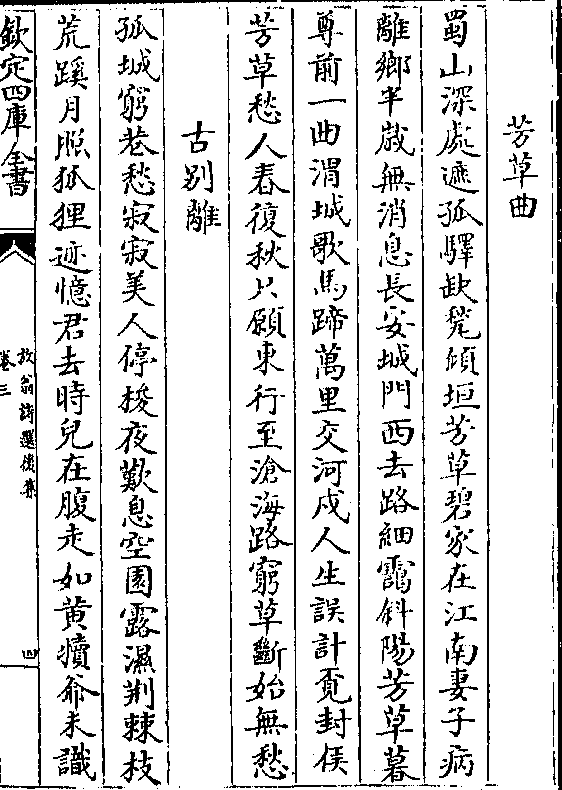 芳草曲
蜀山深處遮孤驛缺甃傾垣芳草碧家在江南妻子病
離鄉半歳無消息長安城門西去路細靄斜陽芳草暮
尊前一曲渭城歌馬蹄萬里交河戍人生誤計覓封侯
芳草愁人春復秋只願東行至滄海路窮草斷始無愁
古别離
孤城窮巷愁寂寂美人停梭夜歎息空園露濕荆棘枝
荒蹊月照狐狸迹憶君去時兒在腹走如黄犢爺未識
欽定四庫全書
放翁詩選後集
卷三
四